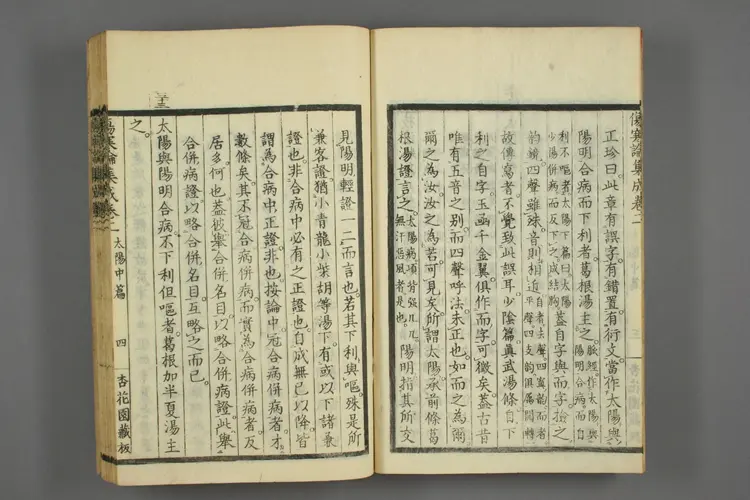 傷寒論集成卷二
正珍曰此章有誤字有錯置有衍文當作太陽與
陽明合病而下利者葛根湯主之。脈經作太陽與陽明合病而自
利不嘔者太陽下篇曰太陽少陽併病而反下之成結胸蓋自字與而字撿之
韵鏡四聲雖殊音則相近自者去聲四寘韻而者平聲四支韵俱屬開轉
故傳寫者不覺致此誤耳少陰篇眞武湯條自下
利之自字玉函千金翼俱作而字可徵矣蓋古昔
唯有五音之別而四聲呼法未正也如而之為爾
爾之為汝汝之為若可見矣所謂太陽承前條葛
根湯證言之太陽病項背強几几無汗惡風者是也。陽明指其所交
見陽明輕證一二而言也若其下利與嘔殊是所
兼客證猶小青龍小柴胡等湯下有或以下諸兼
證也非合病中必有之正證也自成無已以降皆
謂為合病中正證非也按論中冠合病併病者才
數條矣其不冠合病併病而實為合病併病者反
居多何也蓋彼舉合併名目以略合併病證此舉
合併病證以略合併名目互略之而已
太陽與陽明合病不下利但嘔者葛根加半夏湯主
之。
傷寒論集成卷二 太陽中篇 四 杏花園藏板